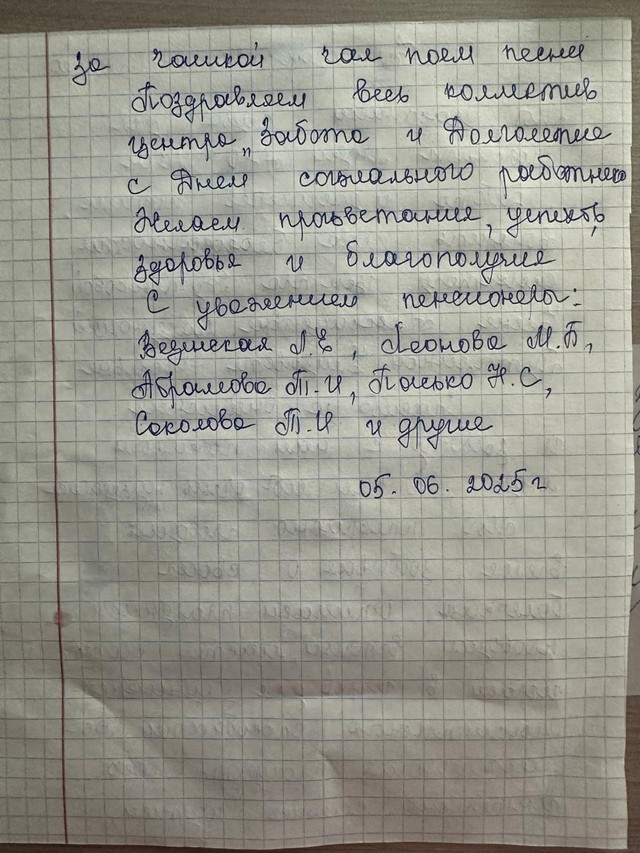 за чашкой чая поем песни
Поздравляем весь коллектив
центра „Забота и Долголетие
с Днем социального работника
Желаем процветания, успехов,
здоровья и благополучия
С уважением пенсионеры:
Л.Е, Леонова М.Б,
Абрамова Т.И, Пасько Н.С,
Соколова Т.И и другие
05. 06. 2025 г